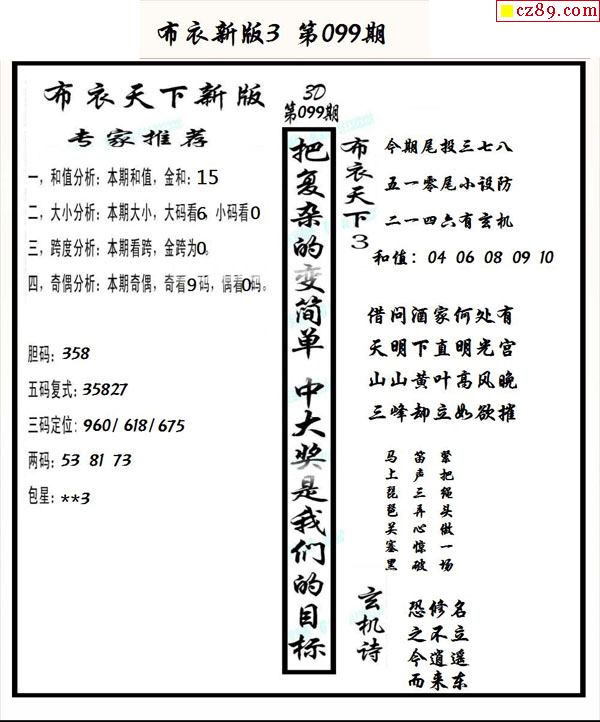 cz89.com
布衣新版3 第099期
布衣天下新版
专家推荐
一，和值分析：本期和值，金和：15
二，大小分析：本期大小，大码看6，小码看0
三，跨度分析：本期看跨，金跨为0。
四，奇偶分析：本期奇偶，奇看9码，偶看0码。
胆码：358
五码复式：35827
三码定位：960/618/675
两码：53 81 73
包星：**3
3D
第099期
把复杂的变简单 中大奖是我们的目标
布衣天下3
今期尾投三七八
五一零尾小设防
二一四六有玄机
和值：04 06 08 09 10
借问酒家何处有
天明下直明光宫
山山黄叶高风晚
三峰却立如欲摧
紧把绳头做一场
笛声三弄心惊破
马上琵琶关塞黑
玄机诗
恐修名
之不立
今逍遥
而来东